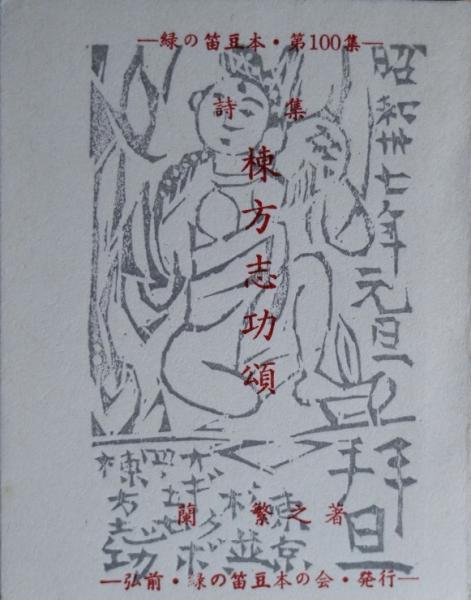 ―緑の笛豆本・第100集―
詩集
棟方志功頌
蘭繁之著
―弘前・緑の笛豆本の会・発行―
昭和卅七年元旦
拝
東京
杉並
オギクボ
棟方志功